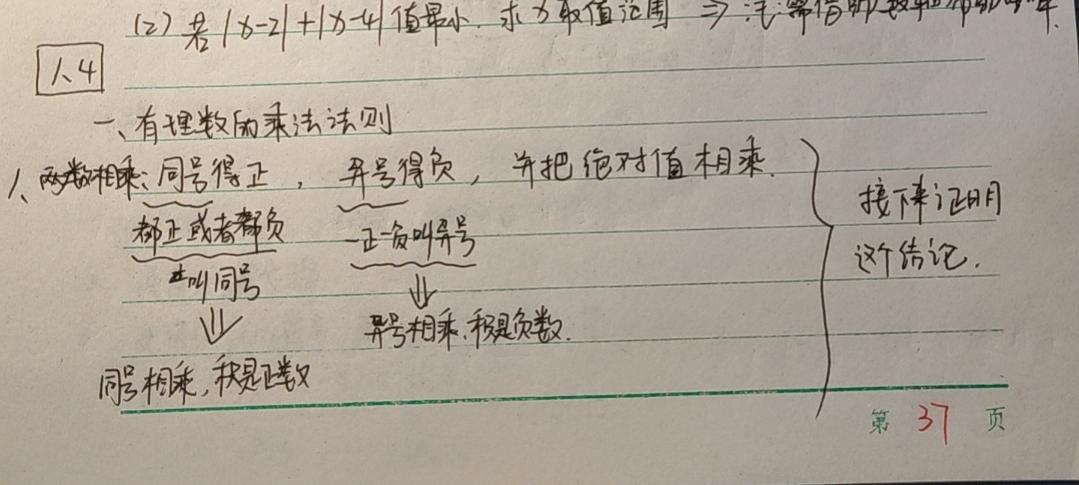 (2) 若|x-2|+|x-4|值最小,求x取值范围 ⇒ 注:需借助数轴
1.4
一、有理数的乘法法则
1、两数相乘:同号得正,异号得负,并把绝对值相乘.
都正或者都负 一正一负叫异号
叫同号
异号相乘,积是负数.
同号相乘,积是正数
接下来证明
这个结论.
第 37 页